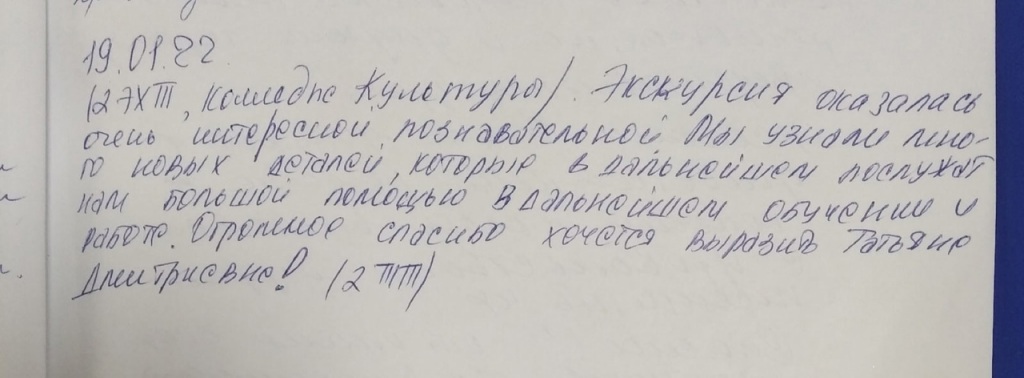 19.01.22
(2 ЭХТТТ, Колледж Культуры). Экскурсия оказалась
очень интересной, познавательной. Мы узнали мно-
го новых деталей, которые в дальнейшем послужат
нам большой помощью в дальнейшем обучении и
работе. Огромное спасибо хочется выразить Татьяне
Дмитриевне! (2 ТТТТ)